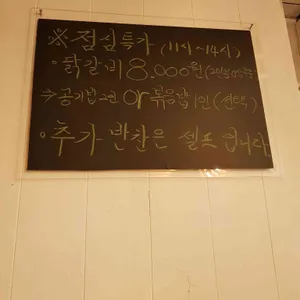 ※ 점심특가 (11시~14시)
· 닭갈비 8,000원 (2인이상
→ 공기밥 2인 or 볶음밥 1인 (선택)
· 추가반찬은 셀프입니다.